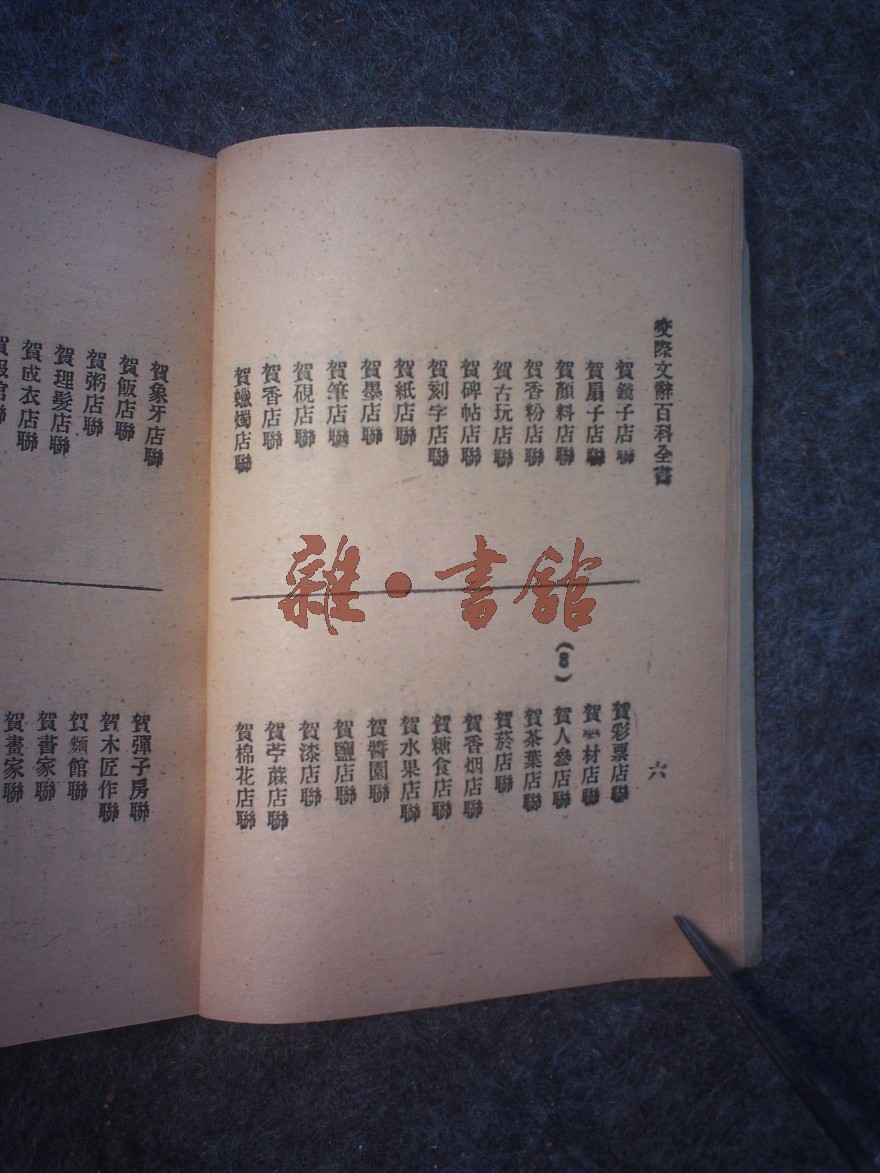 交際文辭百科全書
六
賀鏡子店聯
賀扇子店聯
賀顏料店聯
賀香粉店聯
賀古玩店聯
賀碑帖店聯
賀刻字店聯
賀紙店聯
賀墨店聯
賀筆店聯
賀硯店聯
賀香店聯
賀蠟燭店聯
雜·書館
(8)
賀彩票店聯
賀材店聯
賀人參店聯
賀茶葉店聯
賀菸店聯
賀香烟店聯
賀糖食店聯
賀水果店聯
賀醬園聯
賀鹽店聯
賀漆店聯
賀苧蔴店聯
賀棉花店聯
賀象牙店聯
賀飯店聯
賀粥店聯
賀理髮店聯
賀成衣店聯
賀報館聯
賀彈子房聯
賀木匠作聯
賀麵館聯
賀書家聯
賀畫家聯